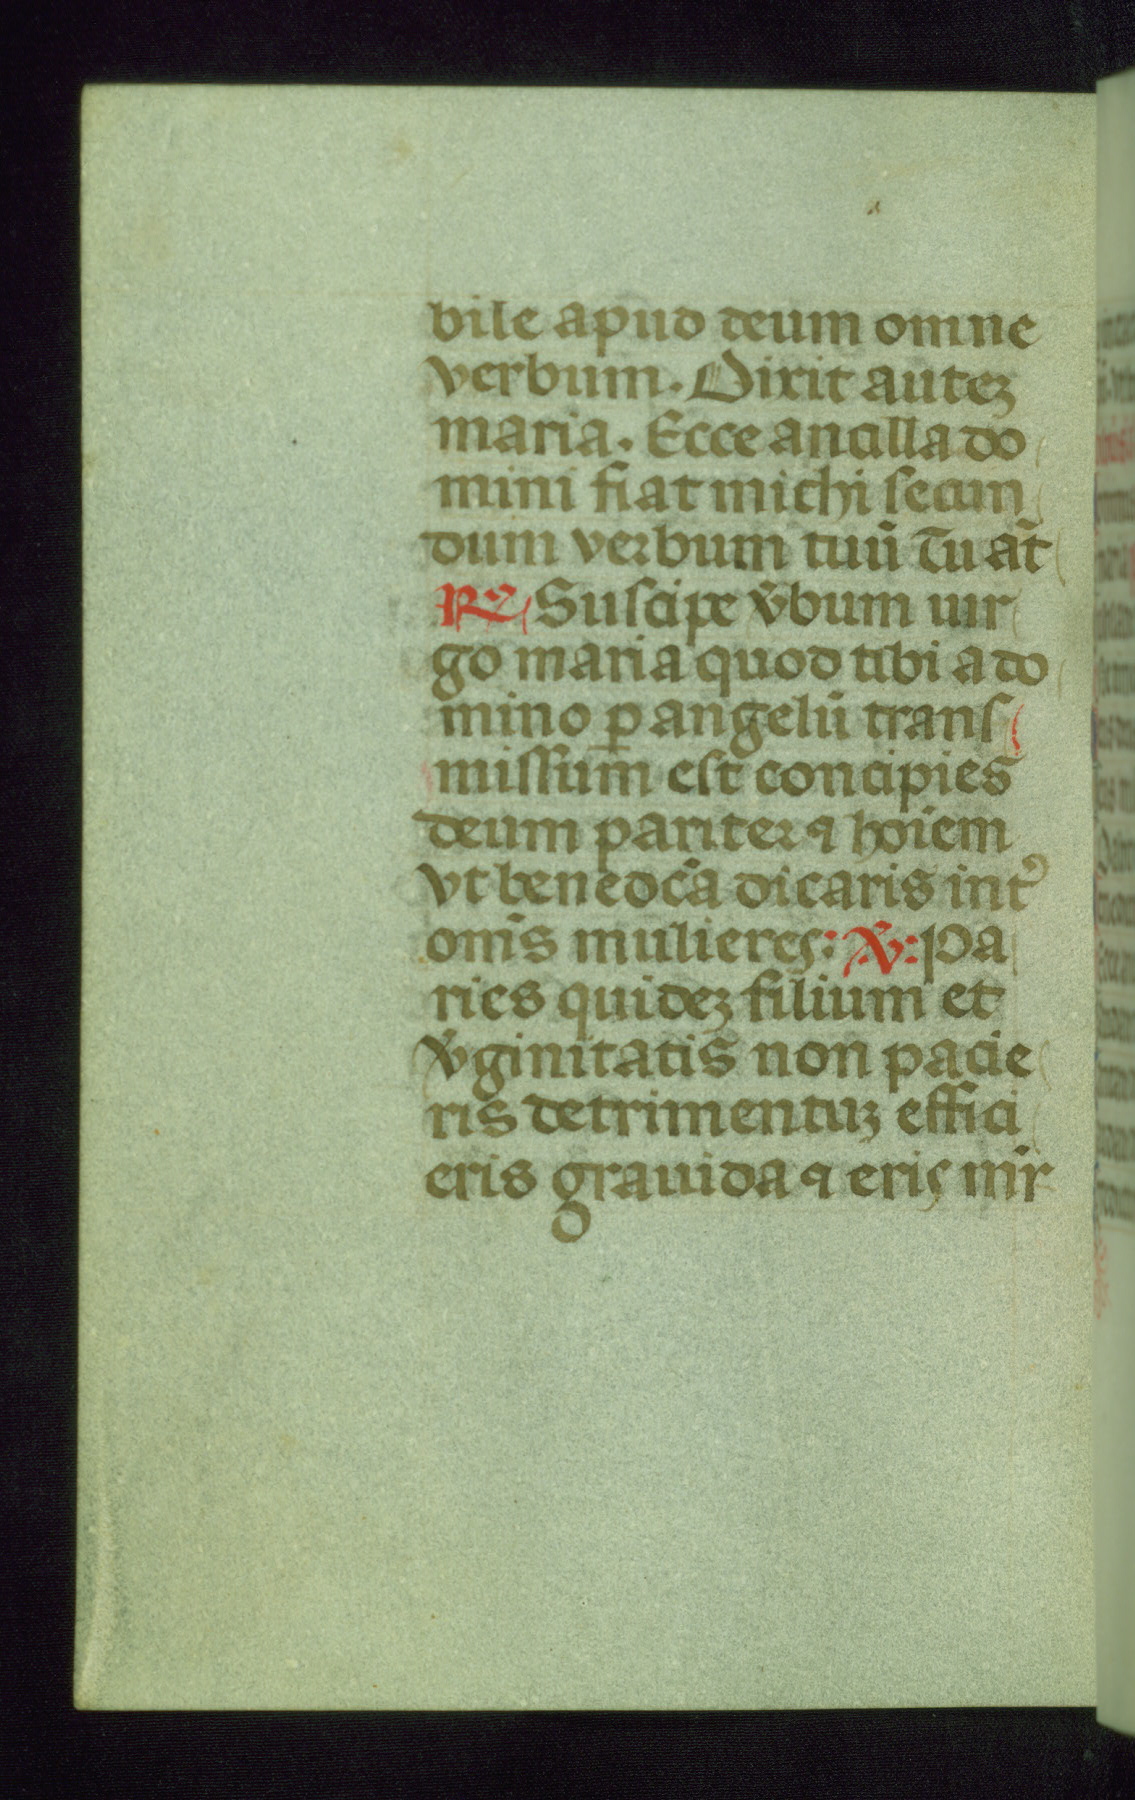 bile apud deum omne
verbum. Dixit auteꝫ
maria. Ecce ancilla do
mini fiat michi secun
dum verbum tuū Tu aūt
℟ Suscipe v̄bum uir
go maria quod tibi a do
mino ꝑ angelū trans
missum est concipies
deum pariter ⁊ hoīem
vt benedc̄a dicaris int᷒
om̄s mulieres: ℣: Pa
ries quideꝫ filium et
v̄ginitatis non pacie
ris detrimentuꝫ effici
eris grauida ⁊ eris mr̄